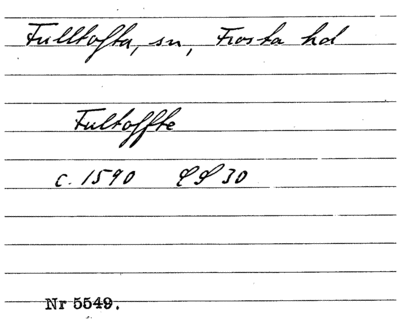 Fulltofta, sn, Frosta hd
Fultoffte
c. 1590 LS 30
Nr 5549.